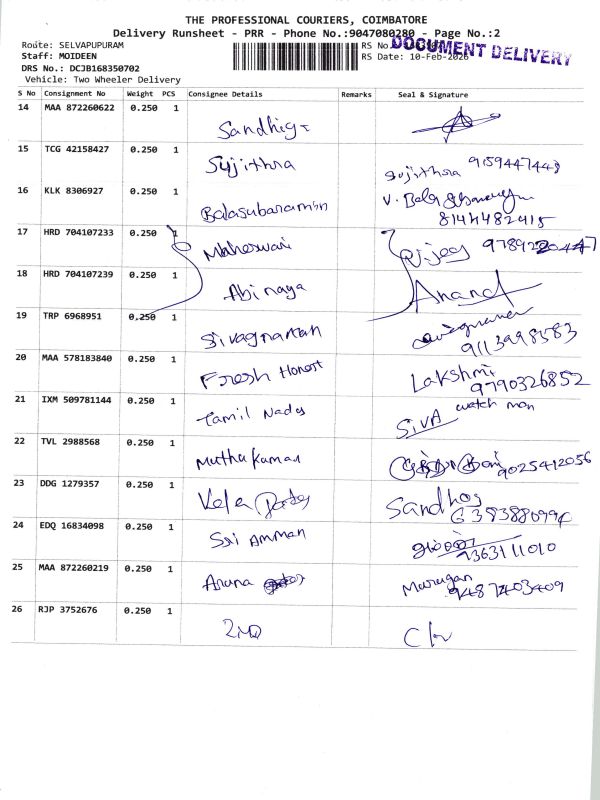 THE PROFESSIONAL COURIERS, COIMBATORE
Delivery Runsheet - PRR - Phone No.:9047080280 - Page No.:2
Route: SELVAPUPURAM
RS No
DOCUMENT DELIVERY
Staff: MOIDEEN
RS Date: 10-Feb-2026
DRS No.: DCJB168350702
Vehicle: Two Wheeler Delivery
S No Consignment No Weight PCS Consignee Details Remarks Seal & Signature
14 MAA 872260622 0.250 1
15 TCG 42158427 0.250 1 Sujithra Sujithra 9159447448
16 KLK 8306927 0.250 1 Balasubaraman V. Bala
8144482415
17 HRD 704107233 0.250 1 Maheswari
18 HRD 704107239 0.250 1 Abinaya Anand
19 TRP 6968951 0.250 1 Sivagnanam
9113998583
20 MAA 578183840 0.250 1 Fresh Honest Lakshmi
9790326852
21 IXM 509781144 0.250 1 Tamil Nadu SIVA watch man
22 TVL 2988568 0.250 1 Muthu Kumar 9025412056
23 DDG 1279357 0.250 1 Vela Sandhos
24 EDQ 16834098 0.250 1 Sri Amman
9363111010
25 MAA 872260219 0.250 1 Aruna Murugan
9487403409
26 RJP 3752676 0.250 1